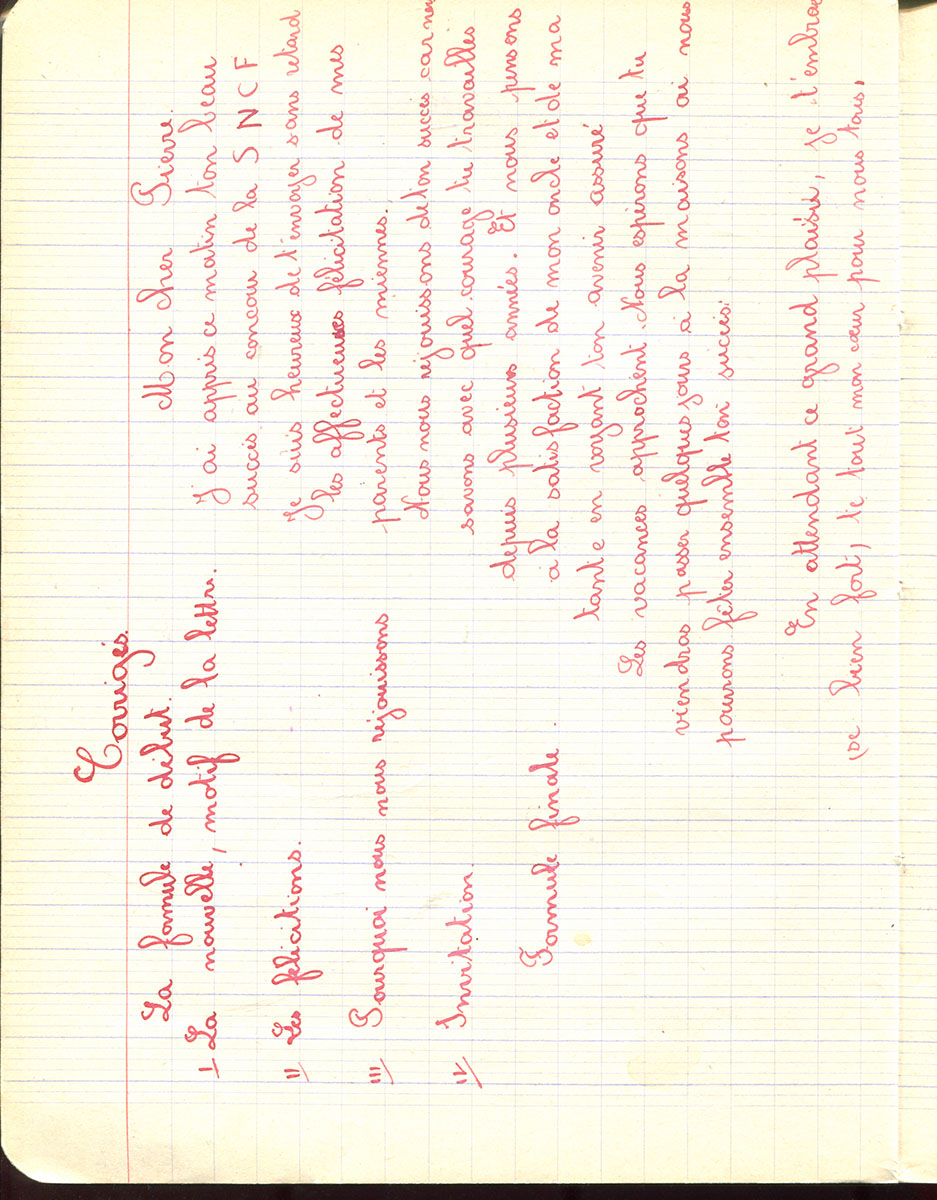 Corrigés.
La formule de début.
I La nouvelle, motif de la lettre.
II/ Les félicitions.
III/ Pourquoi nous nous réjouissons
IV/ Invitation.
Formule finale.
Mon cher Pierre.
J'ai appris ce matin ton beau
succès au concour de la SNCF
Je suis heureux de t'envoyer sans retard
les affectueuses félicitation de mes
parents et les miennes.
Nous nous réjouissons de ton succès car nous
savons avec quel courage tu travailles
depuis plusieurs années. Et nous pensons
à la satisfaction de mon oncle et de ma
tante en voyant ton avenir assuré
Les vacances approchent. Nous espérons que tu
viendras passer quelques jours à la maisons où nous
pourrons fêter ensemble ton succès.
En attendant ce grand plaisir, je t'embras
(se bien fort, de tout mon cœur pour nous tous.